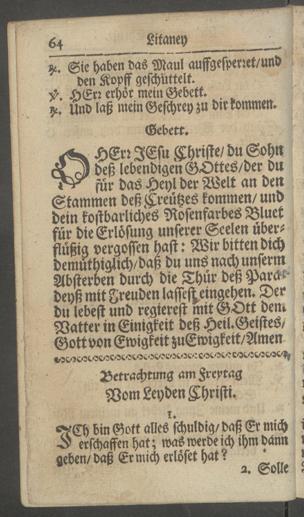 64 Litaney
℟. Sie haben das Maul auffgesperret/und
den Kopff geschüttelt.
℣. HErr erhör mein Gebett.
℟. Und laß mein Geschrey zu dir kommen.
Gebett.
O HErr JEsu Christe/ du Sohn
deß lebendigen GOttes/der du
für das Heyl der Welt an den
Stammen deß Creützes kommen/ und
dein kostbarliches Rosenfarbes Bluet
für die Erlösung unserer Seelen über-
flüßig vergossen hast: Wir bitten dich
demüthiglich/daß du uns nach unserm
Absterben durch die Thür deß Para-
deyß mit Freuden lassest eingehen. Der
du lebest und regierest mit GOtt dem
Vatter in Einigkeit deß Heil. Geistes/
Gott von Ewigkeit zu Ewigkeit/Amen
Betrachtung am Freytag
Vom Leyden Christi.
1.
ICh bin Gott alles schuldig/ daß Er mich
erschaffen hat; was werde ich ihm dann
geben/ daß Er mich erlöset hat?
2. Solle